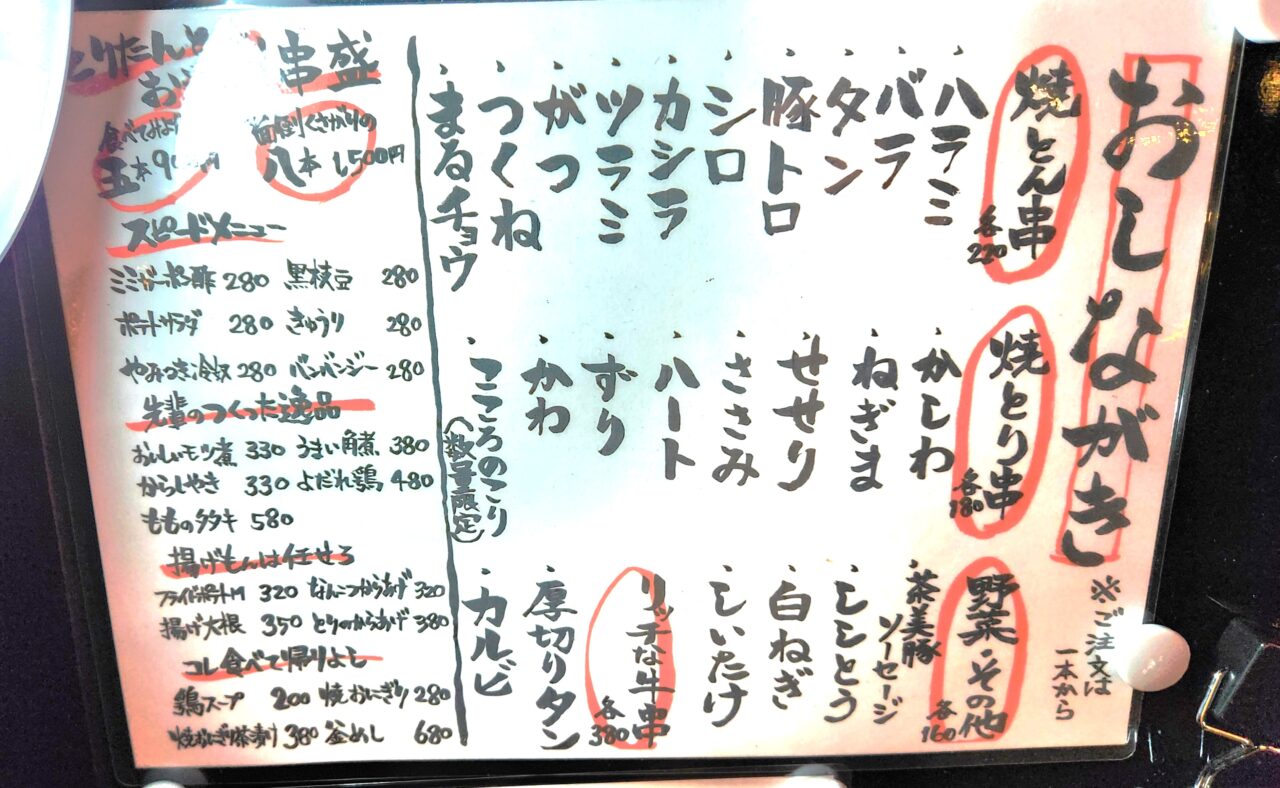 おしながき
※ご注文は
一本から
焼とん串
各220
・ハラミ
・バラ
・タン
・豚トロ
・シロ
・カシラ
・ツラミ
・がつ
・つくね
・まるチョウ
焼とり串
各180
・かしわ
・ねぎま
・せせり
・ささみ
・ハート
・ずり
・かわ
・こころのこり
(数量限定)
野菜・その他
各160
・茶美豚
ソーセージ
・ししとう
・白ねぎ
・しいたけ
リッチな牛串
各380
・厚切りタン
・カルビ
串盛
食べてみよう
五本9
八本1,500円
スピードメニュー
ミミガーポン酢 280 黒枝豆 280
ポテトサラダ 280 きゅうり 280
やみつき冷奴 280 バンバンジー 280
先輩のつくった逸品
おいしいモツ煮 330 うまい角煮 380
からしやき 330 よだれ鶏 480
もものタタキ 580
揚げもんは任せろ
フライドポテトM 320 なんこつからあげ 320
揚げ大根 350 とりのからあげ 380
コレ食べて帰りよし
鶏スープ 200 焼おにぎり 280
焼おにぎり茶漬け 380 釜めし 680